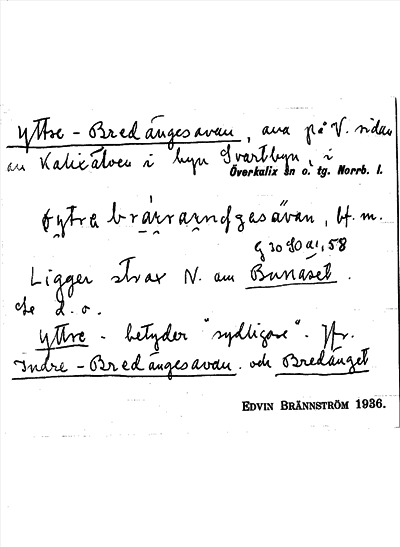 Yttre - Bredängesavan, ava på V. sidan
av Kalixälven i byn Svartbyn, i
Överkalix sn o. tg. Norrb. l.
bf. m.
G 30 SO a1, 58
Ligger strax N. om Bunäset.
Se d. o.
Yttre - betyder "sydligare". Jfr.
Indre - Bredängesavan och Bredänget
EDVIN BRÄNNSTRÖM 1936.